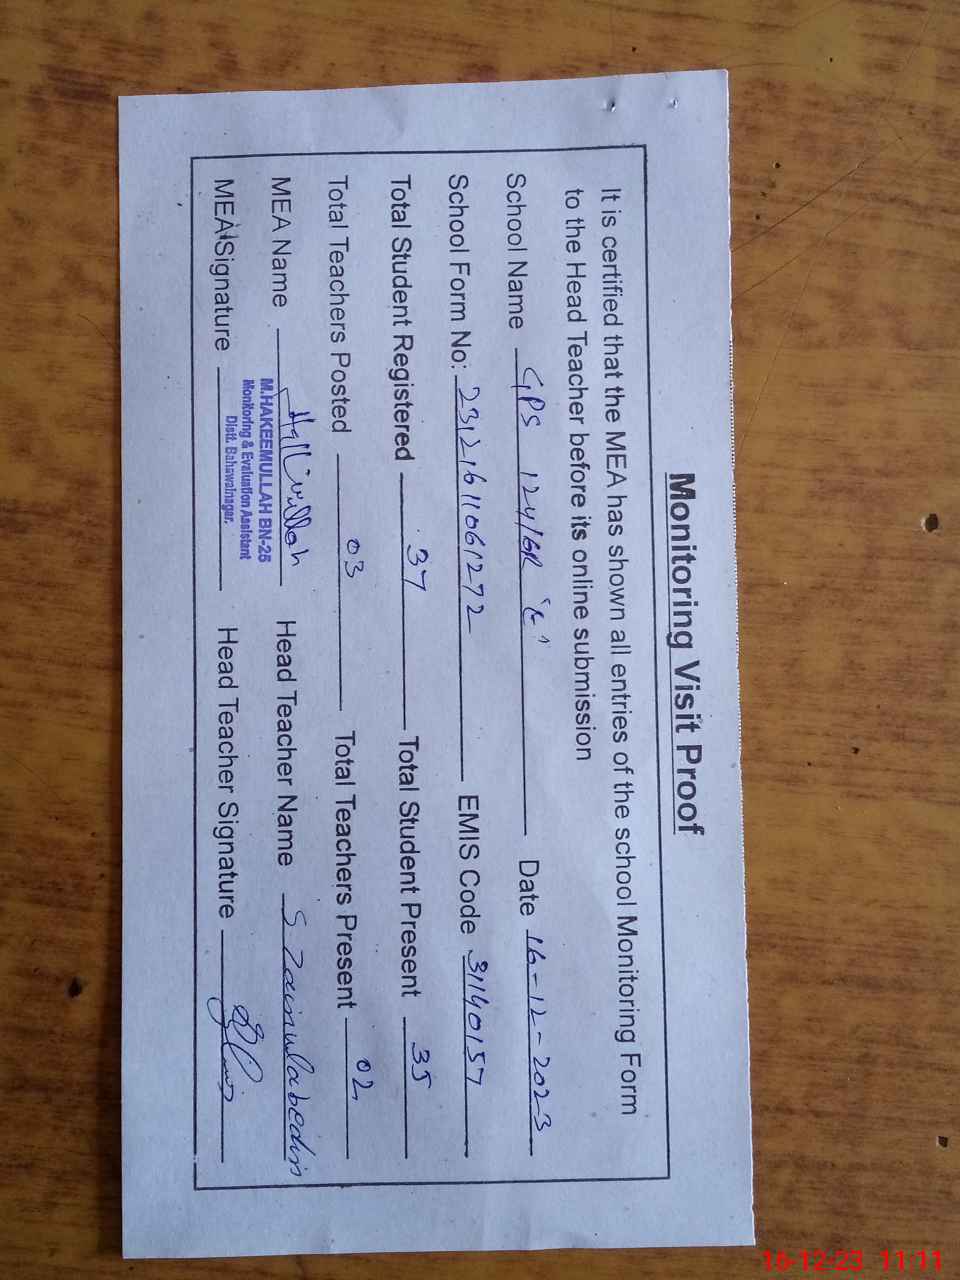 Monitoring Visit Proof
It is certified that the MEA has shown all entries of the school Monitoring Form
to the Head Teacher before its online submission
School Name GPS 124/6R Date 16-12-2023
School Form No: 23121611061272 EMIS Code 31140157
Total Student Registered 37 Total Student Present 35
Total Teachers Posted 03 Total Teachers Present 02
MEA Name Head Teacher Name S Zainulabedin
M.HAKEEMULLAH BN-25
Monitoring & Evaluation Assistant
Distt. Bahawalnagar.
MEA Signature Head Teacher Signature
16-12-23 11:11